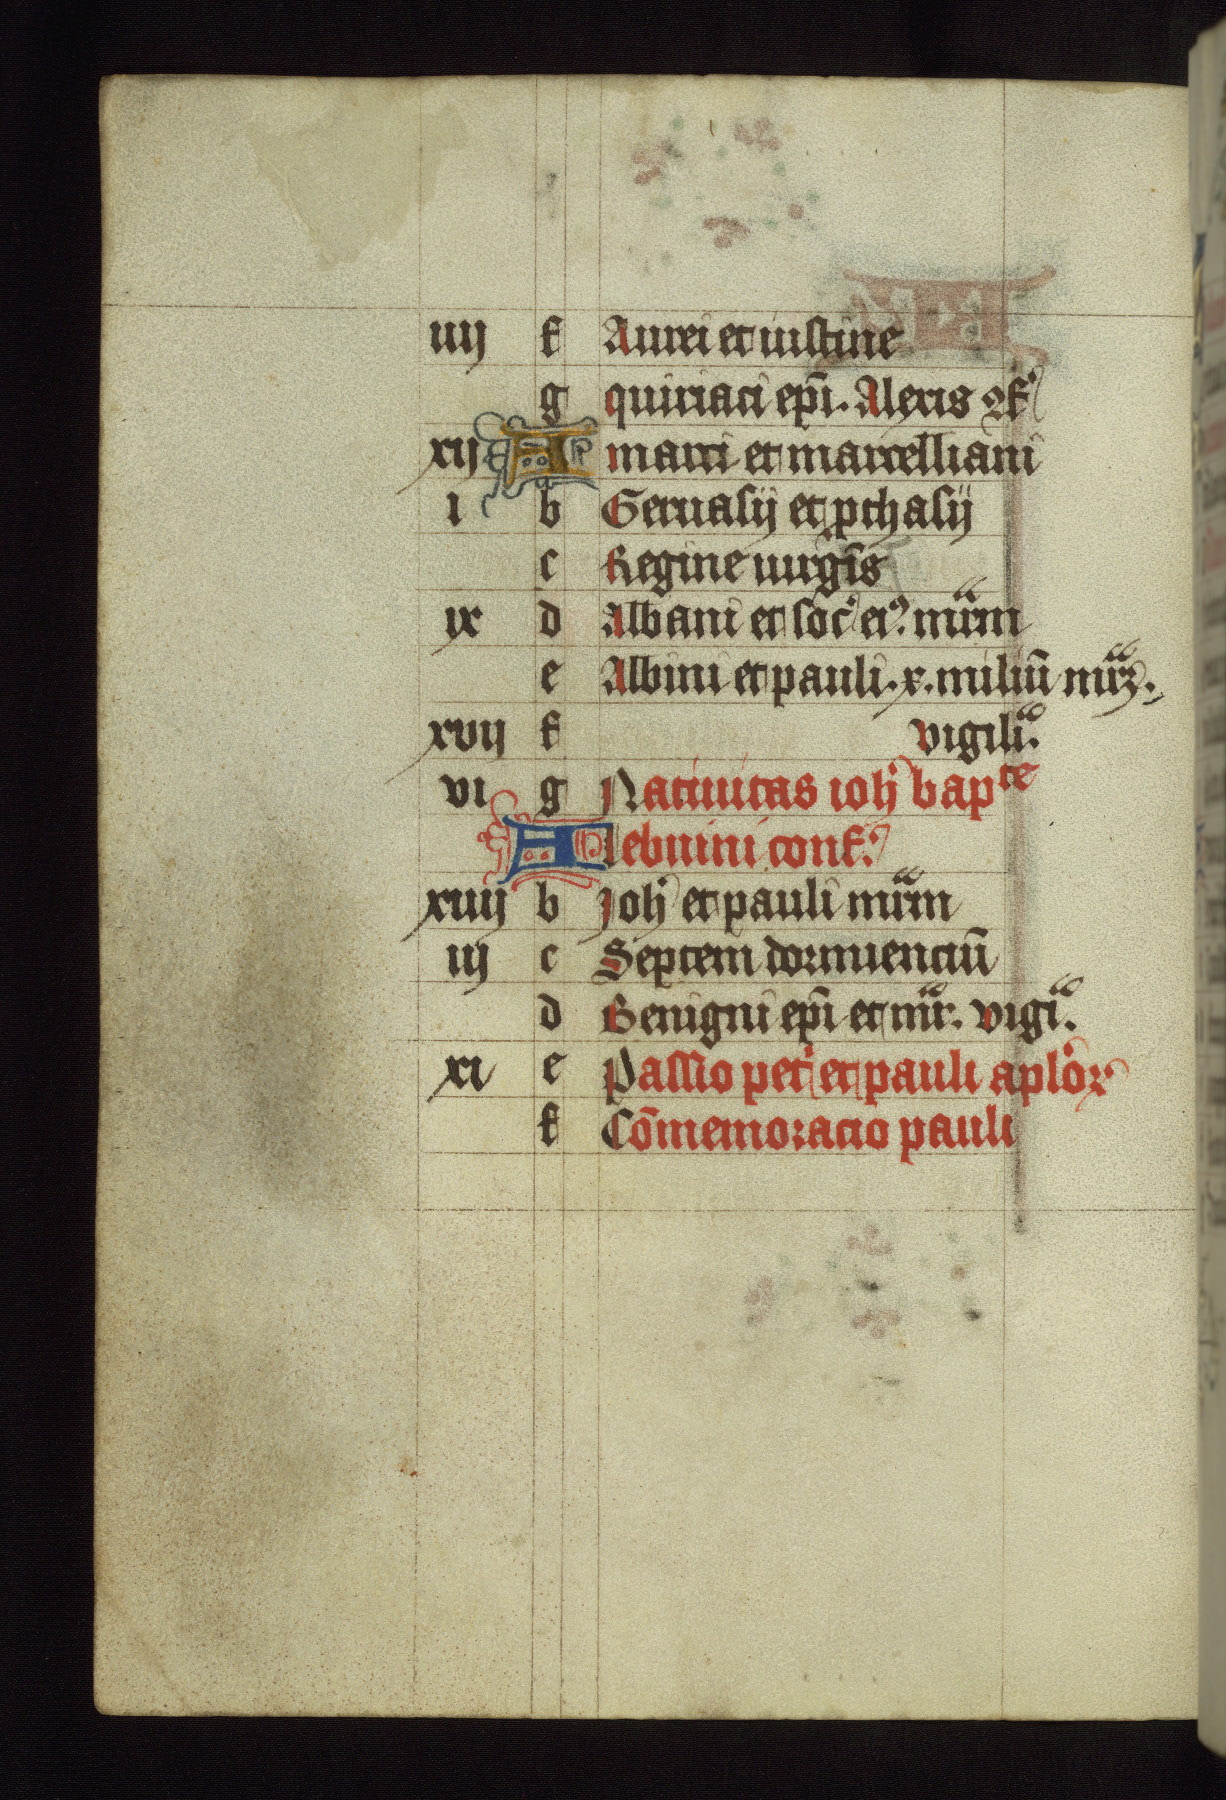 iiij f Aurei et iustine
g quiriaci ep̄i. Alexis ɔf'
xij A marci et marcelliani
i b Geruasij et ꝓthasij
c Regine uirgīs
ix d Albani et soc' ei' mr̄m
e Albini et pauli. x. miliū mr̄ꝝ.
xvij f vigili'.
vi g Natiuitas ioh' bapᵗᵉ
A lebuini conf'
xiiij b Joh' et pauli mr̄m
iij c Septem dormienciū
d Benigni ep̄i et mr̄. vigi'.
xi e Passio pet' et pauli aplōꝝ
f Cōmemoracio pauli